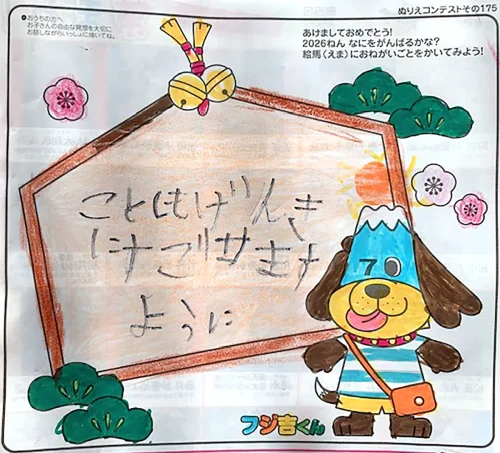 ぬりえコンテストその175
●おうちの方へ
お子さんの自由な発想を大切に
お話しながらいっしょに描いてね。
あけましておめでとう!
2026ねん なにをがんばるかな?
絵馬(えま)におねがいごとをかいてみよう!
ことしもげんき
にすごせます
ように
フジ吉くん